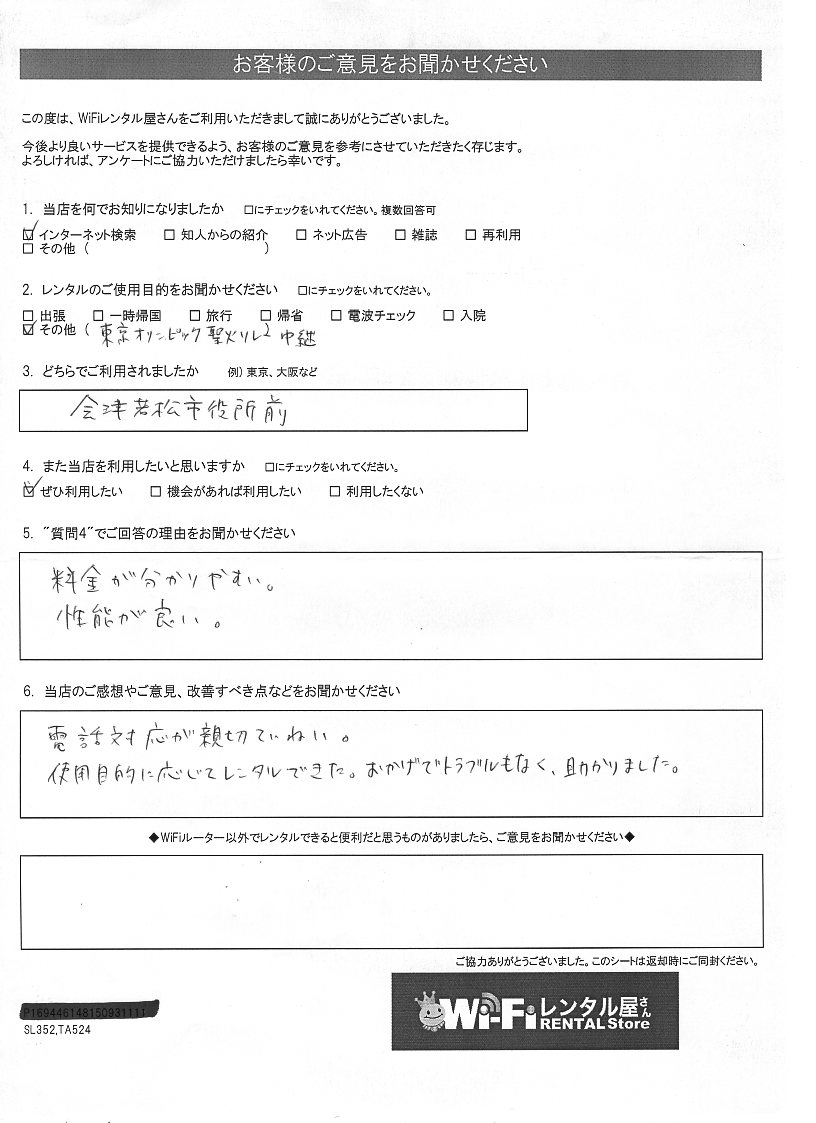 お客様のご意見をお聞かせください
この度は、WiFiレンタル屋さんをご利用いただきまして誠にありがとうございました。
今後より良いサービスを提供できるよう、お客様のご意見を参考にさせていただきたく存じます。
よろしければ、アンケートにご協力いただけましたら幸いです。
1. 当店を何でお知りになりましたか □にチェックをいれてください。複数回答可
☑インターネット検索 □ 知人からの紹介 □ ネット広告 □ 雑誌 □ 再利用
□ その他 ( )
2. レンタルのご使用目的をお聞かせください □にチェックをいれてください。
□ 出張 □ 一時帰国 □ 旅行 □ 帰省 □ 電波チェック □ 入院
☑ その他 ( 東京オリンピック聖火リレー 中継
3. どちらでご利用されましたか 例) 東京、大阪など
会津若松市役所前
4. また当店を利用したいと思いますか □にチェックをいれてください。
☑ ぜひ利用したい □ 機会があれば利用したい □ 利用したくない
5. "質問4"でご回答の理由をお聞かせください
料金が分かりやすい。
性能が良い。
6. 当店のご感想やご意見、改善すべき点などをお聞かせください
電話対応が親切ていねい。
使用目的に応じてレンタルできた。おかげでトラブルもなく、助かりました。
◆WiFiルーター以外でレンタルできると便利だと思うものがありましたら、ご意見をお聞かせください◆
ご協力ありがとうございました。このシートは返却時にご同封ください。
P169446148150931111
SL352,TA524
Wi-Fiレンタル屋さん
RENTAL Store